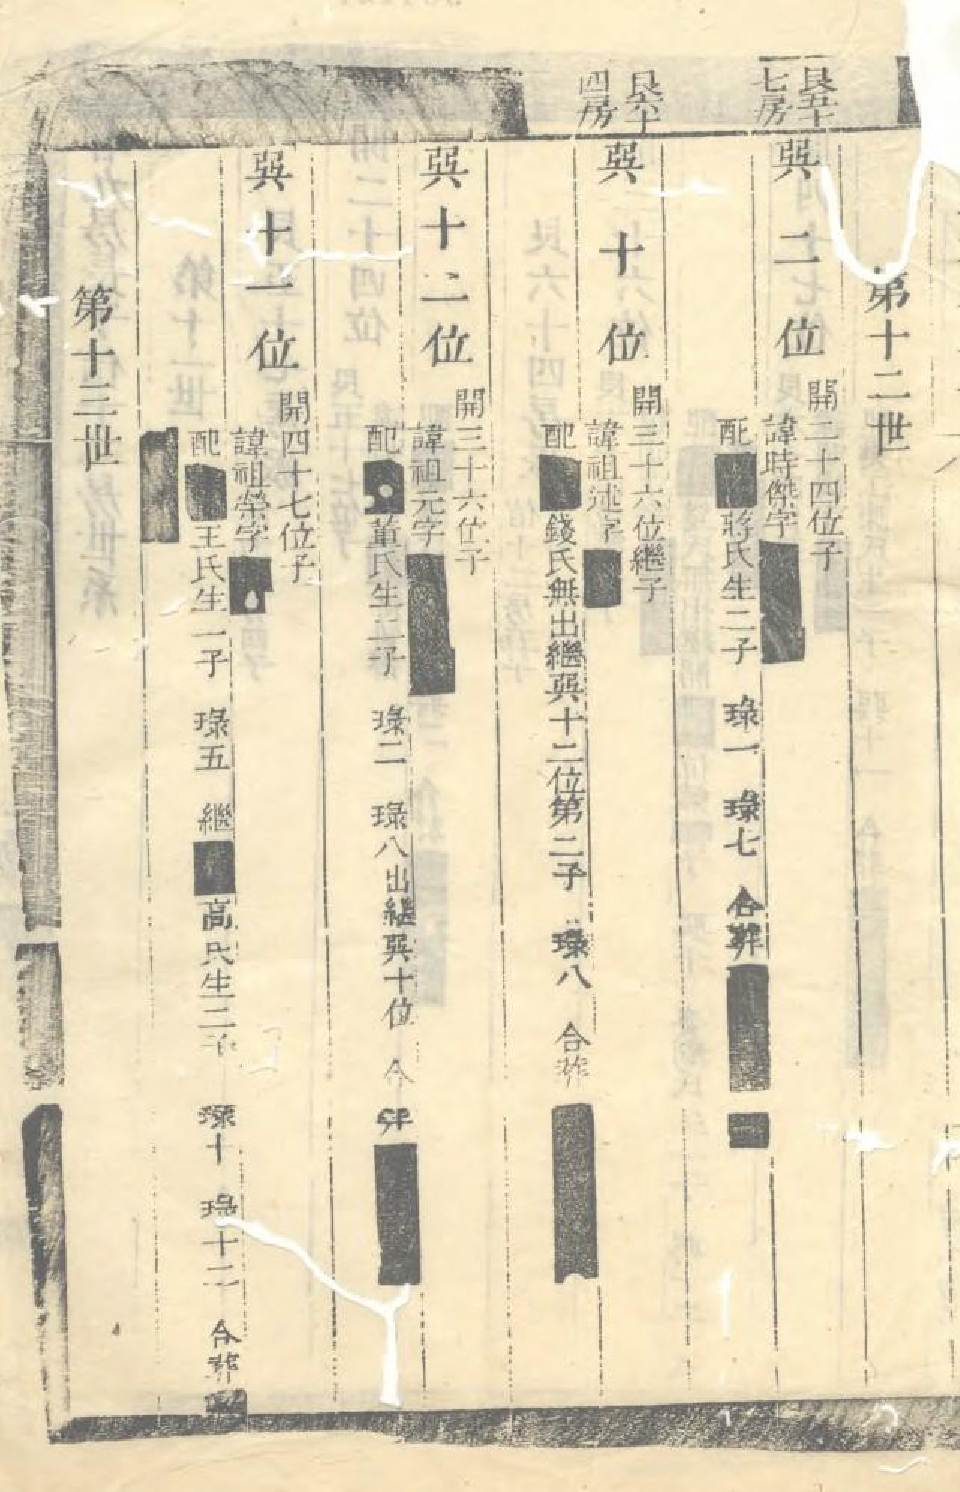 第十二世
艮五十
七房
巽二位
開二十四位子
諱時傑字
配蔣氏生二子 琭一 琭七 合葬
艮六十
四房
巽十位
開三十六位繼子
諱祖述字
配錢氏無出繼巽十二位第二子 琭八 合葬
巽十二位
開三十六位子
諱祖元字
配董氏生二子 琭二 琭八出繼巽十位 合葬
巽十一位
開四十七位子
諱祖榮字
配王氏生一子 琭五 繼高氏生二子 琭十 琭十二 合葬
第十三世